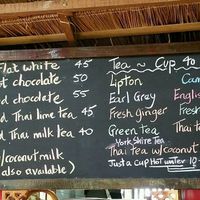 Flat white 45
t chocolate 50
d chocolate 55
d Thai lime tea 45
d Thai milk tea 40
/coconut milk
also available)
Tea ~ Cup 40
Lipton
Earl Grey
English
Fresh ginger
Fresh
Green tea
Thai t
York Shire Tea
Thai tea w/coconut
Just a Cup Hot water 10